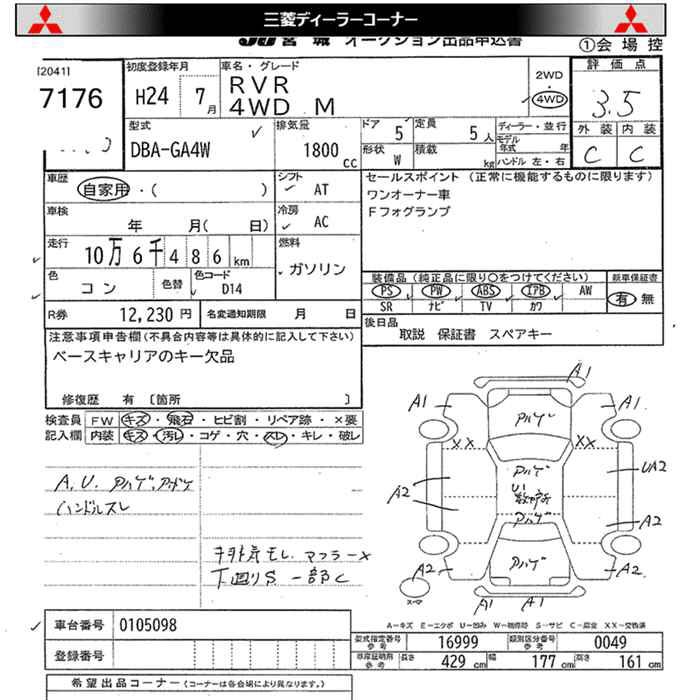 三菱ディーラーコーナー
JU宮城 オークション出品申込書 ①会場控
[2041]
7176
初度登録年月
H24 7月
車名・グレード
RVR
4WD M
2WD
4WD
評価点
3.5
外装 内装
C C
型式
DBA-GA4W
排気量
1800cc
ドア 5
定員 5人
形状 W
積載 kg
ディーラー・並行
モデル年式 年
ハンドル 左・右
車歴
自家用・( )
シフト
AT
セールスポイント (正常に機能するものに限ります)
ワンオーナー車
Fフォグランプ
車検
年 月( 日)
冷房
AC
走行
10万6千486km
燃料
ガソリン
色
コン
色替
色コード
D14
装備品 (純正品に限り○をつけてください)
PS PW ABS IアB AW
SR ナビ TV カワ
新車保証書
有 無
R券 12,230円
名変通知期限 月 日
後日品
取説 保証書 スペアキー
注意事項申告欄(不具合内容等は具体的に記入して下さい)
ベースキャリアのキー欠品
修復歴 有 [箇所 ]
検査員記入欄
FW キズ・飛石・ヒビ割・リペア跡・×要
内装 キズ・汚レ・コゲ・穴・スレ・キレ・破レ
A.U. アハゲ
ハンドルスレ
排気モレ マフラー×
下廻りS 一部C
A1
A1
アハゲ
A1
XX
XX
A2
アハゲ
U1
アハゲ
UA2
A2
A2
アハゲ
A2
A1 A1
A－キズ E－エクボ U－凹み W－補修跡 S－サビ C－腐食 XX－交換済
車台番号 0105098
型式指定番号 参考 16999
類別区分番号 参考 0049
登録番号
車庫証明用 参考 長さ 429cm 幅 177cm 高さ 161cm
希望出品コーナー (コーナーは各会場により異なります。)